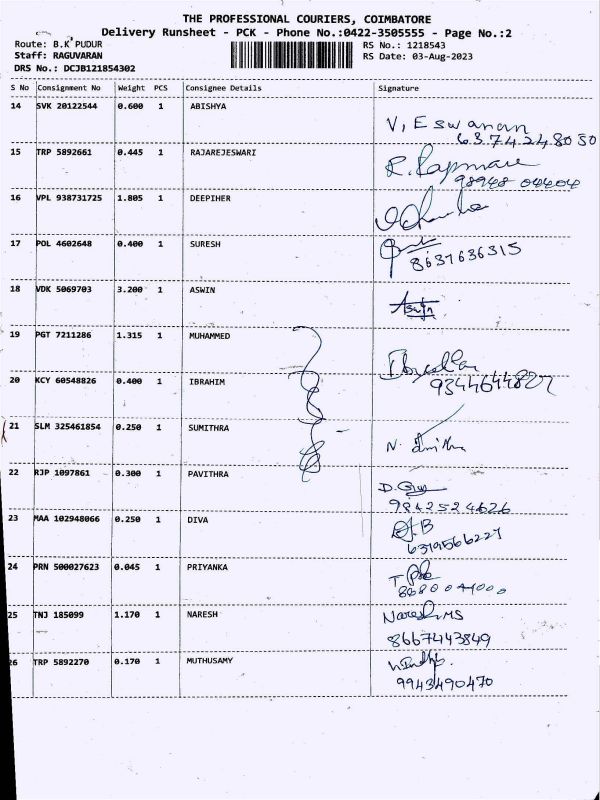 THE PROFESSIONAL COURIERS, COIMBATORE
Delivery Runsheet - PCK - Phone No.:0422-3505555 - Page No.:2
Route: B.K PUDUR RS No.: 1218543
Staff: RAGUVARAN RS Date: 03-Aug-2023
DRS No.: DCJB121854302
S No Consignment No Weight PCS Consignee Details Signature
14 SVK 20122544 0.600 1 ABISHYA
V, Eswaran
6374248050
15 TRP 5892661 0.445 1 RAJAREJESWARI
R.
98948 04404
16 VPL 938731725 1.805 1 DEEPIHER
17 POL 4602648 0.400 1 SURESH
8637636315
18 VDK 5069703 3.200 1 ASWIN
Aswin
19 PGT 7211286 1.315 1 MUHAMMED
20 KCY 60548826 0.400 1 IBRAHIM
9344644827
21 SLM 325461854 0.250 1 SUMITHRA
N.
22 RJP 1097861 0.300 1 PAVITHRA
D.
9842524626
23 MAA 102948066 0.250 1 DIVA
6379566227
24 PRN 500027623 0.045 1 PRIYANKA
T
25 TNJ 185099 1.170 1 NARESH
Naresh MS
8667443849
26 TRP 5892270 0.170 1 MUTHUSAMY
9943490470